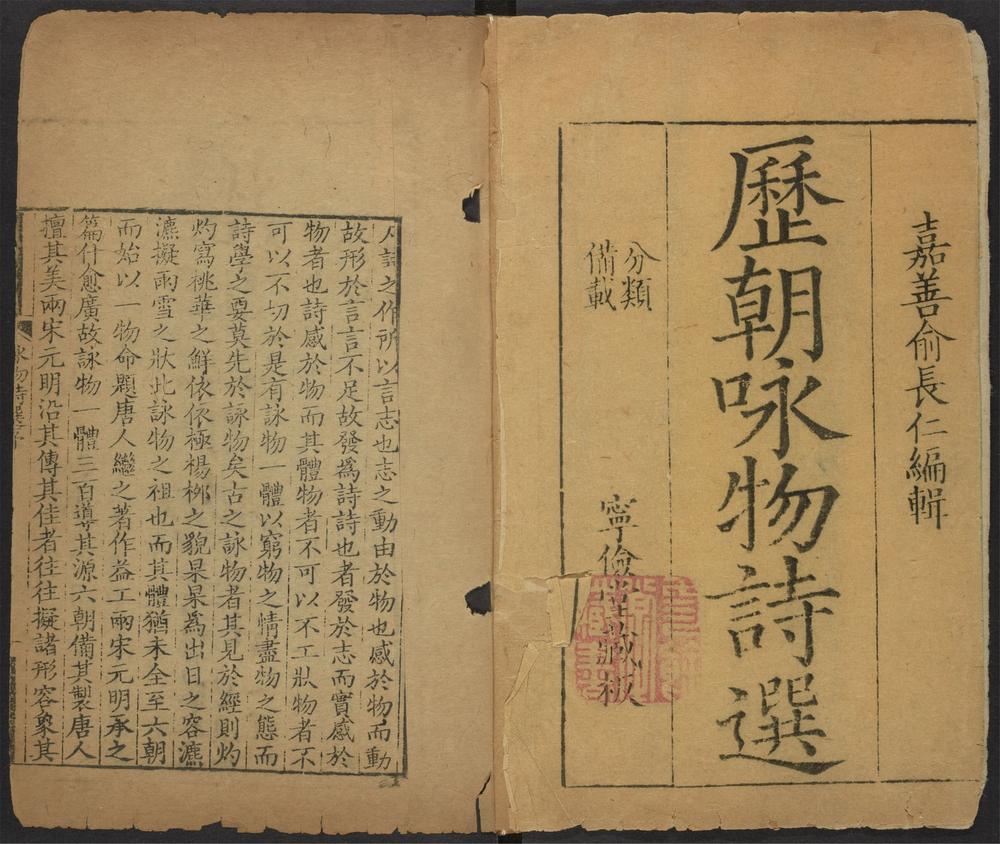 嘉善俞長仁編輯
歷朝咏物詩選
分類
備載
寧儉堂藏板
夫詩之作所以言志也志之動由於物也感於物而動
故形於言言不足故發爲詩詩也者發於志而實感於
物者也詩感於物而其體物者不可以不工狀物者不
可以不切於是有詠物一體以窮物之情盡物之態而
詩學之要莫先於詠物矣古之詠物者其見於經則灼
灼寫桃華之鮮依依極楊桺之貌杲杲爲出日之容瀌
瀌擬雨雪之狀此詠物之祖也而其體猶未全至六朝
而始以一物命題唐人繼之著作益工兩宋元明承之
篇什愈廣故詠物一體三百導其源六朝備其製唐人
擅其美兩宋元明沿其傳其佳者往往擬諸形容象其
咏物詩選序